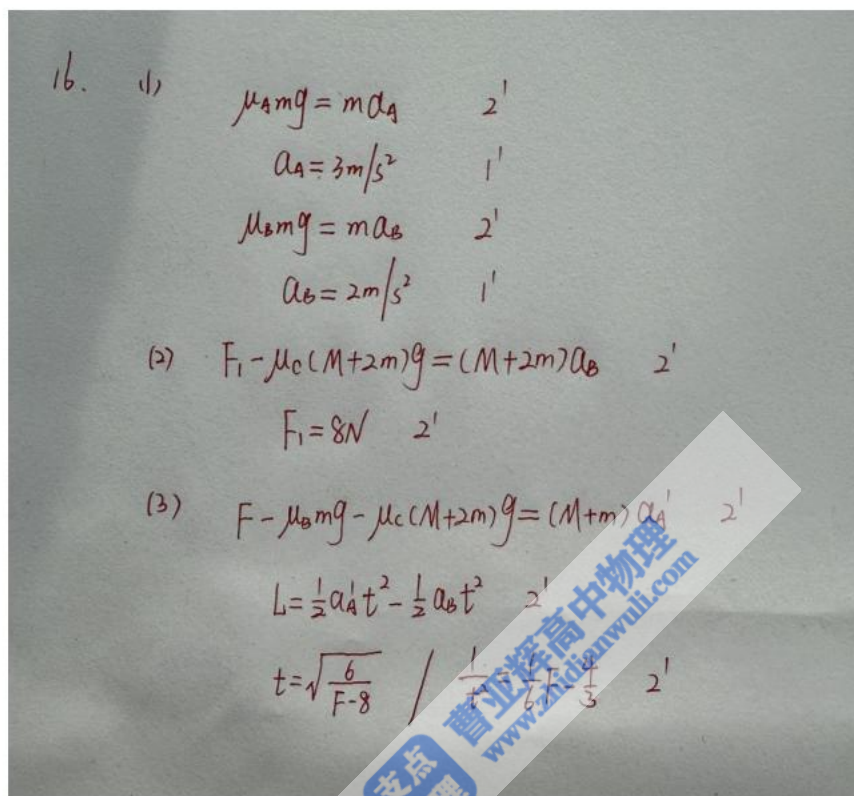 16. (1) μ_A mg = m a_A 2'
a_A = 3m/s² 1'
μ_B mg = m a_B 2'
a_B = 2m/s² 1'
(2) F₁ - μ_C (M+2m)g = (M+2m) a_B 2'
F₁ = 8N 2'
(3) F - μ_B mg - μ_C (M+2m)g = (M+m) a_A' 2'
L = ½ a_A' t² - ½ a_B t² 2'
t = √(6/(F-8)) / 1/t² = 1/6 F - 4/3 2'
曹亚辉高中物理
www.zhidianwuli.com
支点